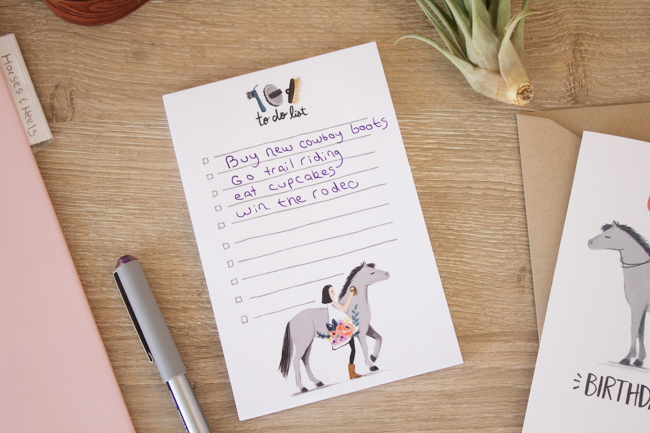 Horses & Heels
to do list
Buy new cowboy boots
Go trail riding
eat cupcakes
win the rodeo